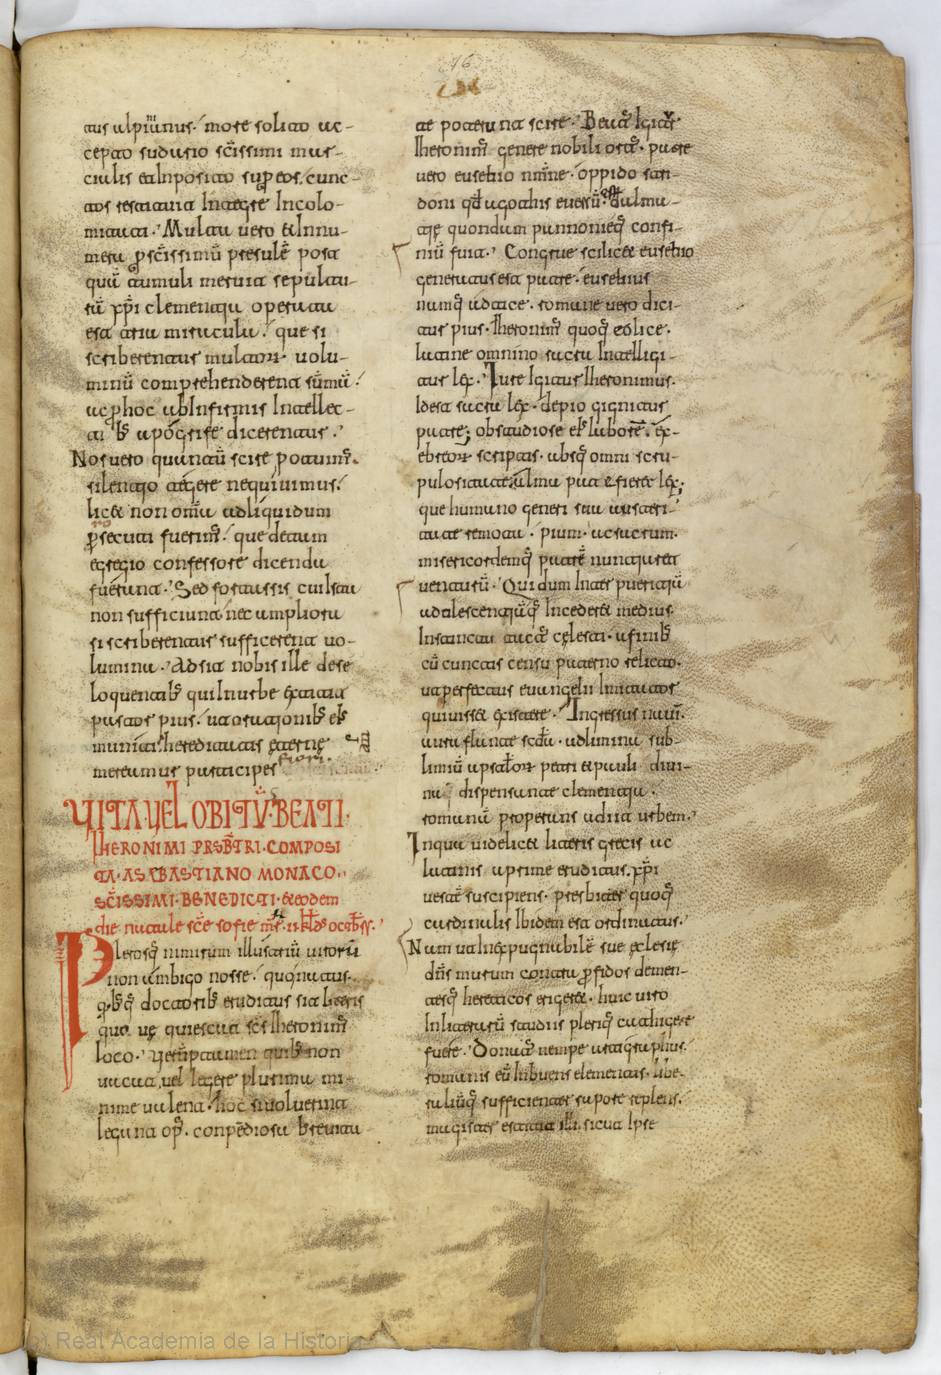 16
tus ulpianus. more solito ve-
cepto sudario scissimi mar-
cialis et Inposito super eos. cunc-
tos restituit Integre Incolo-
mitati. Multa vero et Innu-
mera per scissimū presulē post
quā tumuli meruit sepultu-
rā xp̄i clementia operata
est atria miracula. que si
scriberentur multorū volu-
minū comprehenderent summā.
ac per hoc ab Infirmis Intellec-
ti bs apogrife dicerentur.
Nos vero quantū scire potuimꝰ.
silentio tegere nequivimus.
licet non omnia ad liquidum
persecuti fuerimꝰ. que de tam
egregio confessore dicenda
fuerunt. Sed fortassis cuilsta
non sufficiunt nec ampliora
si scriberentur sufficerent vo-
lumina. Adsit nobis ille dese
loquentibꝰ qui In urbe extitit
pastor pius. ut orationibꝰ eiꝰ
muniti hereditatis eterne
mereamur participes fiori.
VITA VEL OBITŪ BEATI
IHERONIMI PRSBTRI COMPOSI
TA A SEBASTIANO MONACO
SCISSIMI BENEDICTI et eodem
die natale sce sofie ms. II klds octbrs.
Plerosq nimirum illustriū virorū
non ambigo nosse. quo natus.
qibꝰq doctoribꝰ eruditus sit litteris
quo ve quiescat scs Iheronimꝰ
loco. verūptamen quibꝰ non
vacat vel legere plurima mi-
nime valent. hoc si voluerint
legant opꝰ. conpendiosa brevita
te poterunt scire. Beatꝰ Igitur
Iheronimꝰ genere nobili ortꝰ. patre
vero eusebio nmne. oppido stri-
doni qd ugothis eversū est dalma-
tie quondam pannonieq confi-
niū fuit. Congrue scilicet eusebio
generatus est patre. eusebius
namq attice. romane vero dici-
tur pius. Iheronimꝰ quoq eolice.
latine omnino sacra Intelligi-
tur lex. Iure Igitur Iheronimus.
Idest sacra lex. de pio gignitur
patre; ob studiose eiꝰ laborē. ex
ebreorū scriptis. absq omni scru-
pulositate alma pat efieret lex;
que humano generi sua austeri-
tate remota. pium. ac sacrum.
misericordemq patrē nuntiaret
venturū. Qui dum Inter pueritiā
adalescentiāq Incederet medius.
Instinctu tactꝰ celesti. a finibꝰ
cū cunctis censu paterno relicto.
ut perfectus evangelii Imitator
quivisset existere. Ingressus navī.
aura flante scda. ad limina sub-
limiū apstlorū petri et pauli divi-
na dispensante clementia.
romanā properans adiit urbem.
In qua videlicet litteris grecis ac
latinis aprime eruditus. xpi
vestē suscipiens. presbiter quoq
cardinalis Ibidem est ordinatus.
Nam ut Inexpugnabilē sue eclesie
dns murum contra perfidos demen-
tesq hereticos erigeret. huic viro
In litterarū studiis pleriq cu atingere
fuere. Donatꝰ nempe
romanis eū Inbuens elementis. libe-
raliūq sufficienter su pore replens.
magister extitit illi. sicut Ipse